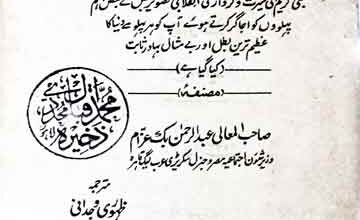 نبی کریم کی سیرت و کردار کی انقلابی تصویر میں سے بعض اہم
پہلوؤں کو اجاگر کرتے ہوئے آپ کو ہر پہلو سے دنیا کا
عظیم ترین بطل اور بے مثال بہادر ثابت
(کیا گیا ہے)
(مصنفہ)
صاحب المعالی عبدالرحمن بک عزام
وزیر شئون اجتماعیہ مصر و جنرل سکریٹری عرب لیگ قاہرہ
ترجمہ
محمد
ذخیرہ